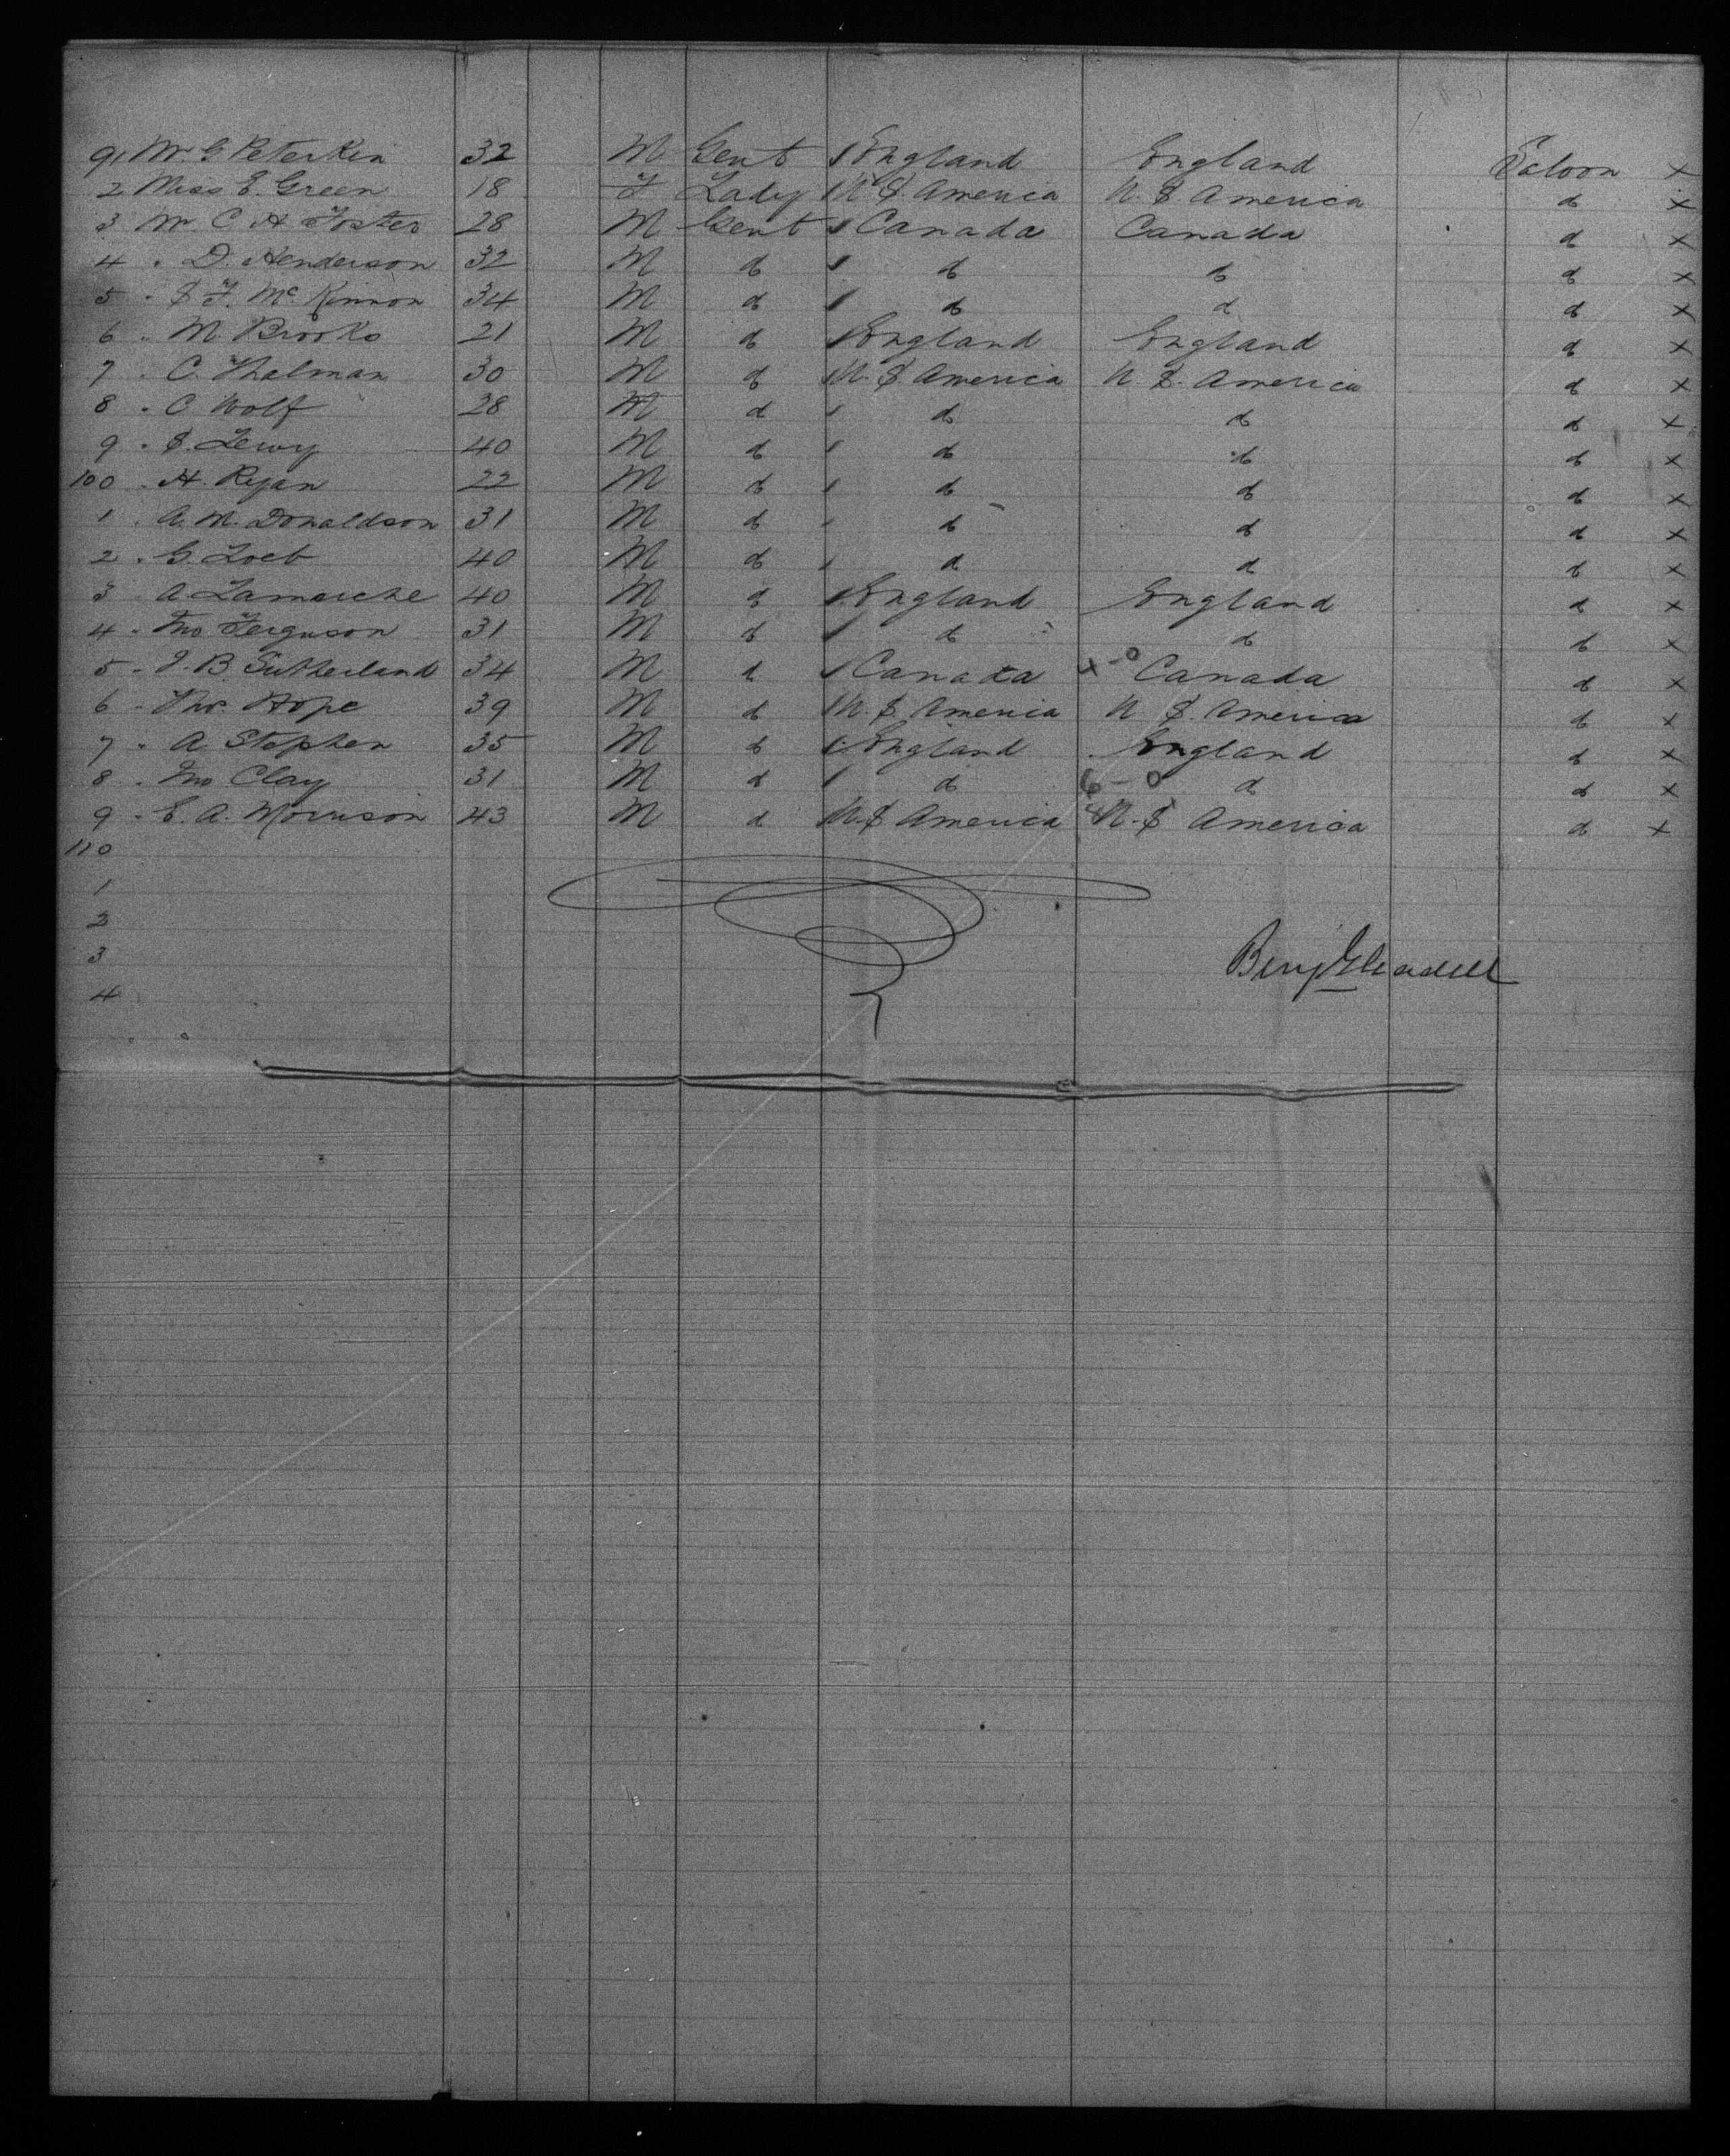 91 Mr. G Peterkin 32 M Gent 1 England England Saloon x
2 Miss E. Green 18 F Lady 1 U. S. America U. S. America d x
3 Mr. C. H Foster 28 M Gent 1 Canada Canada d x
4 " D. Henderson 32 M d 1 d d d x
5 " S F. McKinnon 34 M d 1 d d d x
6 " M. Brooks 21 M d 1 England England d x
7 " C. Thalman 30 M d 1 U. S. America U. S. America d x
8 " C. Wolf 28 M d 1 d d d x
9 " S. Lewy 40 M d 1 d d d x
100 " H. Ryan 22 M d 1 d d d x
1 " A. M. Donaldson 31 M d 1 d d d x
2 " G. Loeb 40 M d 1 d d d x
3 " A. Lamarche 40 M d 1 England England d x
4 " Jno. Ferguson 31 M d 1 d d d x
5 " J. B. Sutherland 34 M d 1 Canada 4-0 Canada d x
6 " Thos. Hope 39 M d 1 U. S. America U. S. America d x
7 " A. Stephen 35 M d 1 England England d x
8 " Jno Clay 31 M d 1 d 6-0 d d x
9 " E. A. Morrison 43 M d U. S America U. S America d x
110
1
2
3 Benj Gleadell
4